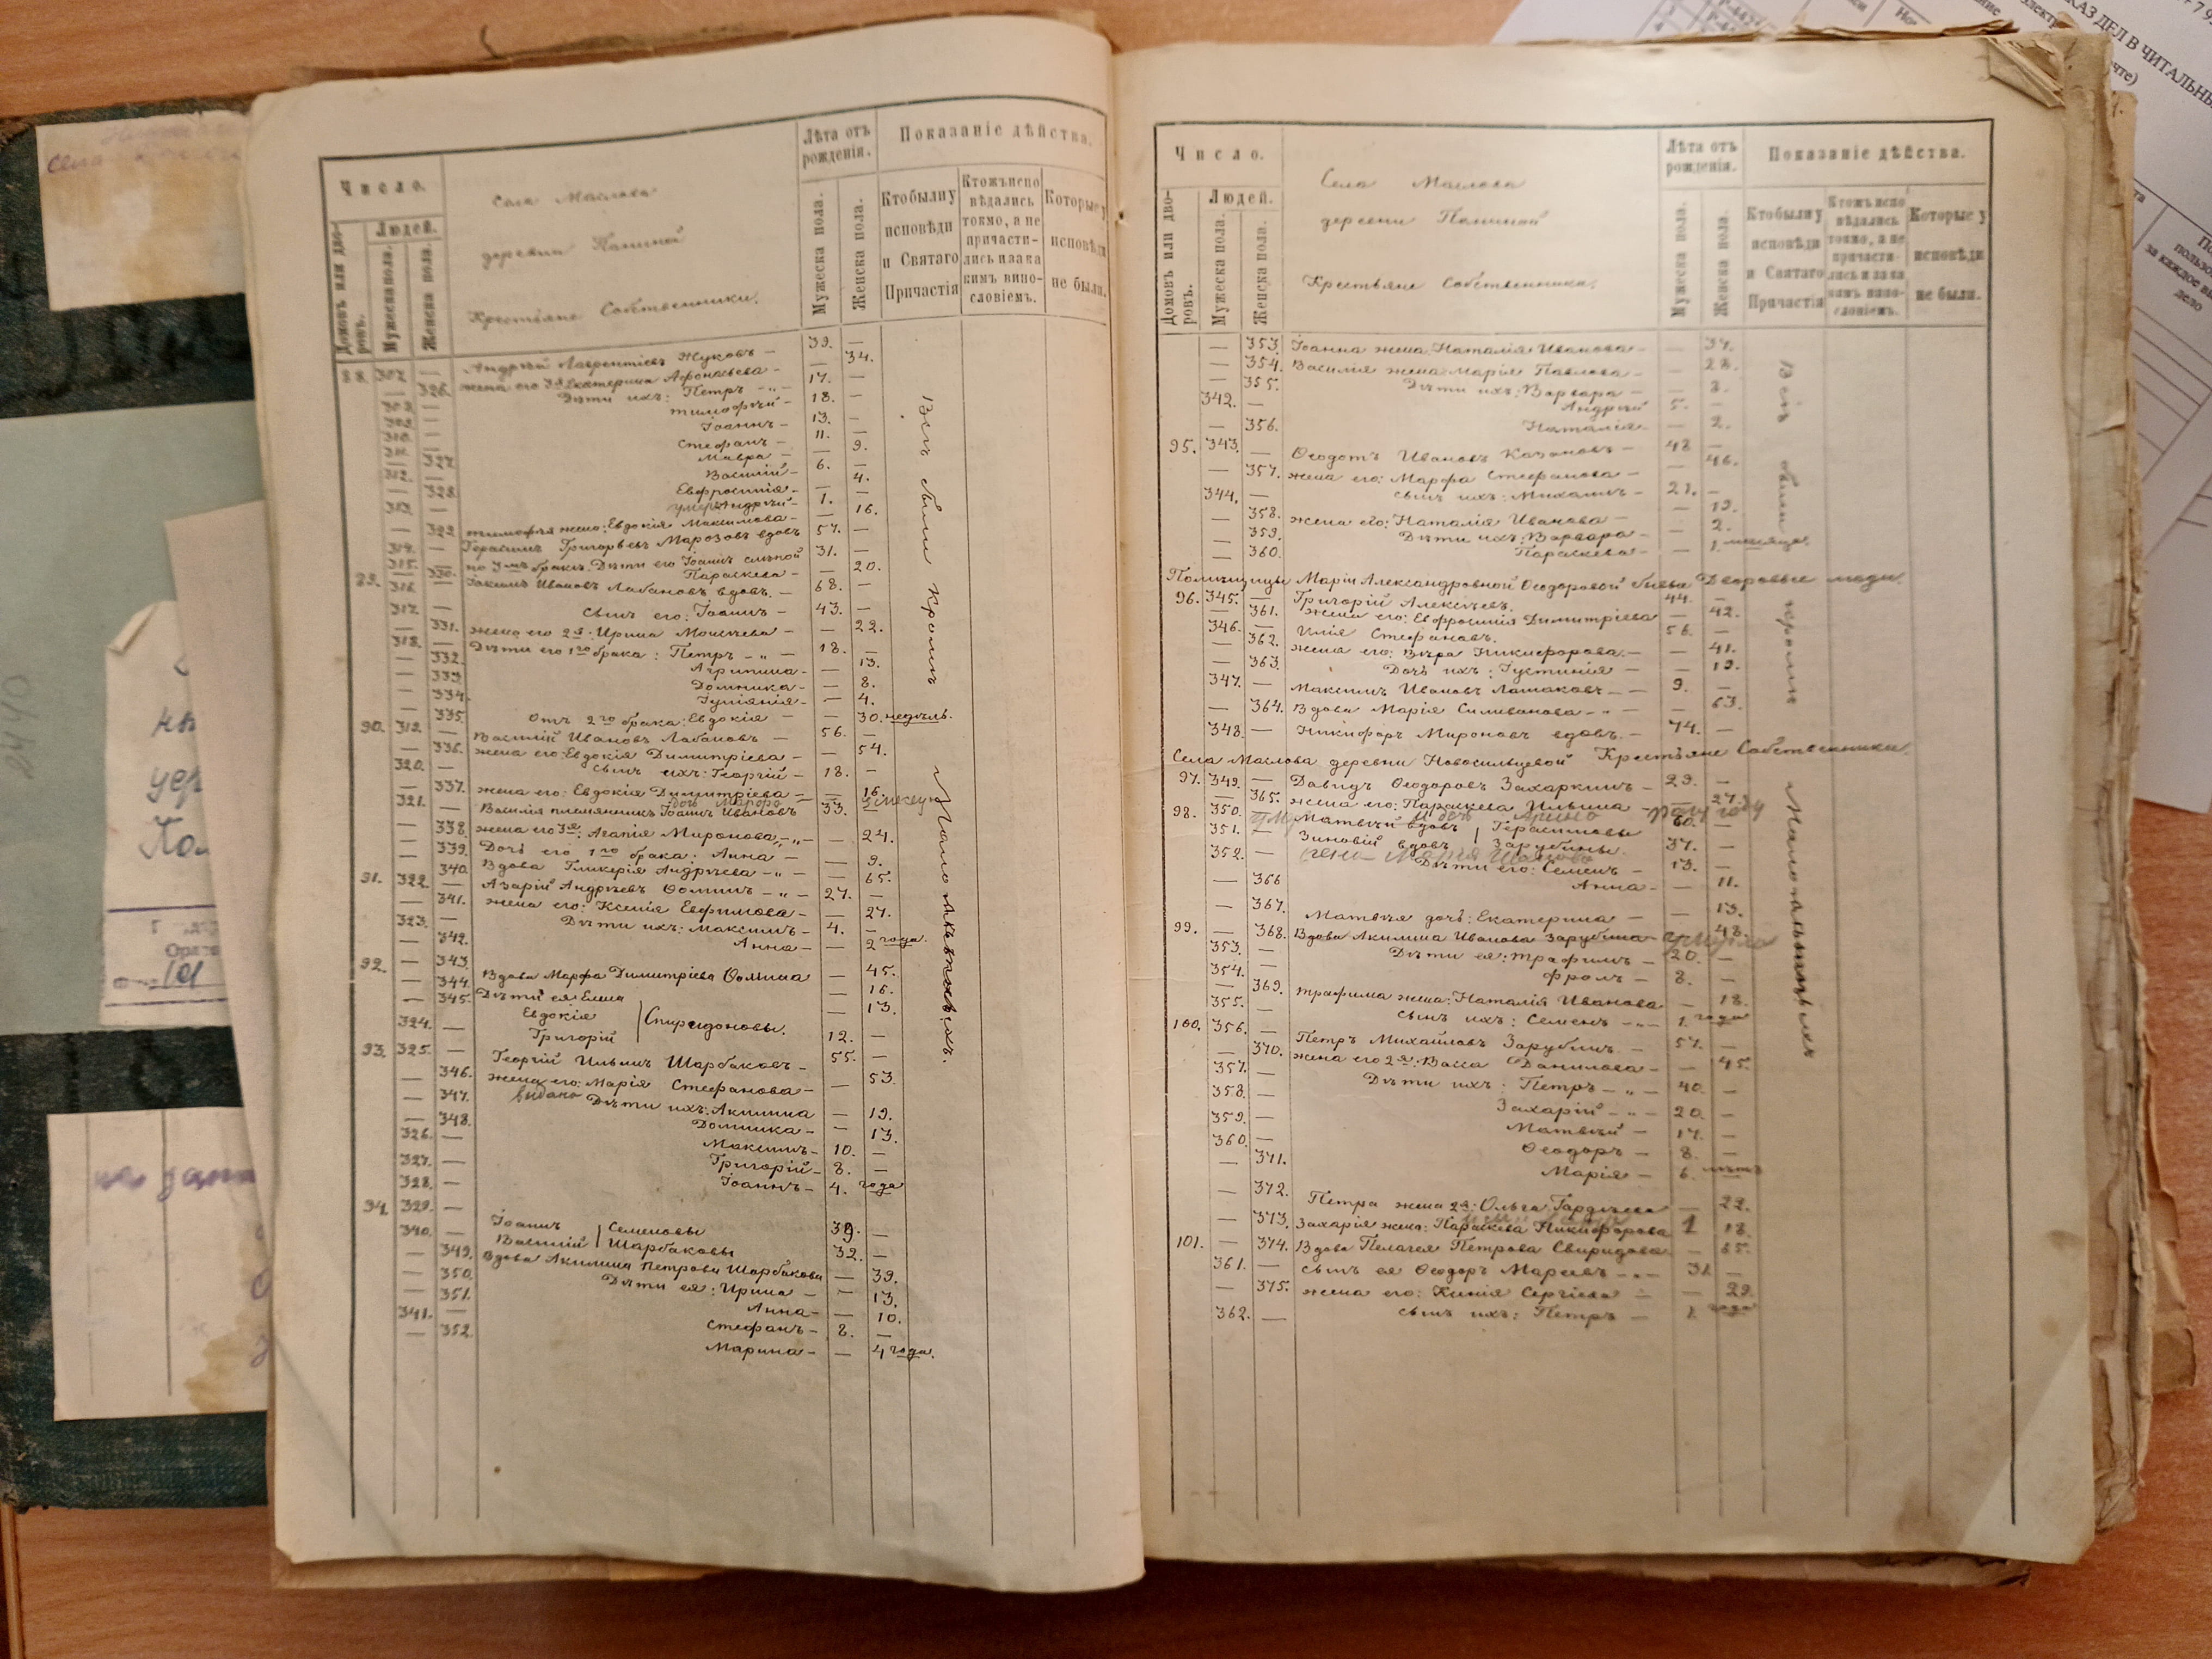 Число.
Домовъ или дворовъ.
Людей.
Мужеска пола.
Женска пола.
Села Маслова
деревни Паниной
Крестьяне Собственники.
Лѣта отъ рожденія.
Мужеска пола.
Женска пола.
Показаніе дѣйства.
Кто были у исповѣди и Святаго Причастія
Ктожъ исповѣдались токмо, а не причастились и за какимъ винословіемъ.
Которые у исповѣди не были.
88. 307. — Андрей Лаврентіевъ Жуковъ — 39. —
— 326. жена его 3я Екатерина Афонасьева — — 34.
308. — Дѣти ихъ: Петръ — 17. —
309. — Тимофѣй — 18. —
310. — Іоаннъ — 13. —
311. — Стефанъ — 11. —
— 327. Мавра — — 9.
312. — Василій — 6. —
— 328. Евфросинія — — 4.
313. — умеръ Андрей — 1. —
— 329. Тимофея жена: Евдокія Максимова — — 16.
314. — Герасимъ Григорьевъ Марозовъ вдовъ 57. —
315. — по 3мъ бракѣ. Дѣти его Іоаннъ слѣпой 31. —
— 330. Параскева — — 20.
89. 316. — Іакимъ Ивановъ Лабановъ вдовъ. — 68. —
317. — Сынъ его: Іоаннъ — 43. —
— 331. жена его 2я: Ирина Моисѣева — — 22.
318. — Дѣти его 1го брака: Петръ — 18. —
— 332. Агрипина — — 13.
— 333. Домника — — 8.
— 334. Іуліянія — — 4.
— 335. Отъ 2го брака: Евдокія — — 30. недѣль.
90. 319. — Василій Ивановъ Лабановъ — 56. —
— 336. жена его: Евдокія Димитріева — — 54.
320. — Сынъ ихъ: Георгій — 18. —
— 337. жена его: Евдокія Димитріева — — 16.
321. — Василія племянникъ Іоаннъ Ивановъ 33. —
— 338. жена его 3я: Агапія Миронова — — 24.
— 339. Дочь его 1го брака: Анна — — 9.
— 340. Вдова Гликерія Андреева — — 65.
91. 322. — Азарій Андреевъ Ѳоминъ — 27. —
— 341. жена его: Ксенія Евфимова — — 27.
323. — Дѣти ихъ: Максимъ — 4. —
— 342. Анна — — 2 года.
92. — 343. Вдова Марфа Димитріева Ѳомина — 45.
— 344. Дѣти ея Елена — 16.
— 345. Евдокія Спиридоновы. — 13.
324. — Григорій 12. —
93. 325. — Георгій Ильинъ Шарбаковъ — 55. —
— 346. жена его: Марія Стефанова — — 53.
— 347. выдана Дѣти ихъ: Акилина — 19.
— 348. Домника — — 13.
326. — Максимъ — 10. —
327. — Григорій — 8. —
328. — Іоаннъ — 4. года
94. 329. — Іоаннъ Семеновы 39. —
340. — Василій Шарбаковы 32. —
— 349. Вдова Акилина Петрова Шарбакова — 39.
— 350. Дѣти ея: Ирина — — 13.
— 351. Анна — — 10.
341. — Стефанъ — 8. —
— 352. Марина — — 4 года.
Всѣ были кромѣ Малолѣтнихъ.
Число.
Домовъ или дворовъ.
Людей.
Мужеска пола.
Женска пола.
Села Маслова
деревни Паниной
Крестьяне Собственники.
Лѣта отъ рожденія.
Мужеска пола.
Женска пола.
Показаніе дѣйства.
Кто были у исповѣди и Святаго Причастія
Ктожъ исповѣдались токмо, а не причастились и за какимъ винословіемъ.
Которые у исповѣди не были.
— 353. Іоанна жена: Наталія Иванова — — 34.
— 354. Василія жена: Марія Павлова — — 28.
— 355. Дѣти ихъ: Варвара — — 8.
342. — Андрей 5. —
— 356. Наталія — — 2.
95. 343. — Ѳеодотъ Ивановъ Казаковъ — 48 —
— 357. жена его: Марфа Стефанова — — 46.
344. — Сынъ ихъ: Михаилъ — 21. —
— 358. жена его: Наталія Иванова — — 19.
— 359. Дѣти ихъ: Варвара — — 2.
— 360. Параскева — — 1. мѣсяца.
Помѣщицы Маріи Александровной Ѳеодоровой бывш. Дворовые люди.
96. 345. — Григорій Алексѣевъ. 44. —
— 361. жена его: Евфросинія Димитріева — — 42.
346. — Илія Стефановъ. 56. —
— 362. жена его: Вѣра Никифорова. — — 41.
— 363. Дочь ихъ: Іустинія — — 19.
347. — Максимъ Ивановъ Лашаковъ — 9. —
— 364. Вдова Марія Силиванова — — 63.
348. — Никифоръ Мироновъ вдовъ. — 74. —
Села Маслова деревни Новосильцевой Крестьяне Собственники.
97. 349. — Давидъ Ѳеодоровъ Захаркинъ — 29. —
— 365. жена его: Параскева Ильина — — 27.
98. 350. — Матвѣй вдовъ Герасимовы 60. —
351. — Зиновій вдовъ Зарубины. 37. —
352. — Дѣти его: Семенъ — 13. —
— 366 Анна — — 11.
— 367. Матвѣя дочь: Екатерина — — 13.
99. — 368. Вдова Акилина Иванова Зарубина — 48.
353. — Дѣти ея: Трафимъ — 20. —
354. — Фролъ — 8. —
— 369. Трафима жена: Наталія Иванова — 18.
355. — Сынъ ихъ: Семенъ — 1. года
100. 356. — Петръ Михайловъ Зарубинъ. — 57. —
— 370. жена его 2я: Васса Данилова — — 45.
357. — Дѣти ихъ: Петръ — 40. —
358. — Захарій — 20. —
359. — Матвѣй — 17. —
360. — Ѳеодоръ — 8. —
— 371. Марія — 6. лѣтъ
— 372. Петра жена 2я: Ольга Гордѣева — 22.
— 373. Захарія жена: Параскева Никифорова 1 18.
101. — 374. Вдова Пелагея Петрова Свиридова. — 65.
361. — Сынъ ея Ѳеодоръ Мареевъ — 31. —
— 375. жена его: Ксенія Сергіева — — 29.
362. — Сынъ ихъ: Петръ — 1. года
Всѣ были кромѣ Малолѣтнихъ